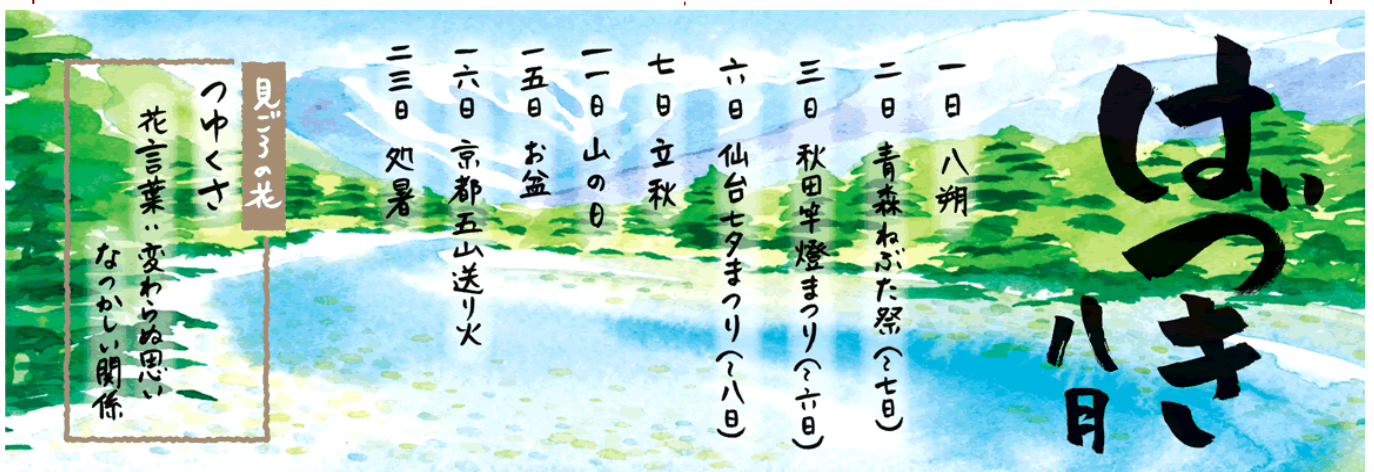 はづき
八月
一日 八朔
二日 青森ねぶた祭(~七日)
三日 秋田竿燈まつり(~六日)
六日 仙台七夕まつり(~八日)
七日 立秋
一一日 山の日
一五日 お盆
一六日 京都五山送り火
二三日 処暑
見ごろの花
つゆくさ
花言葉:変わらぬ思い
なつかしい関係